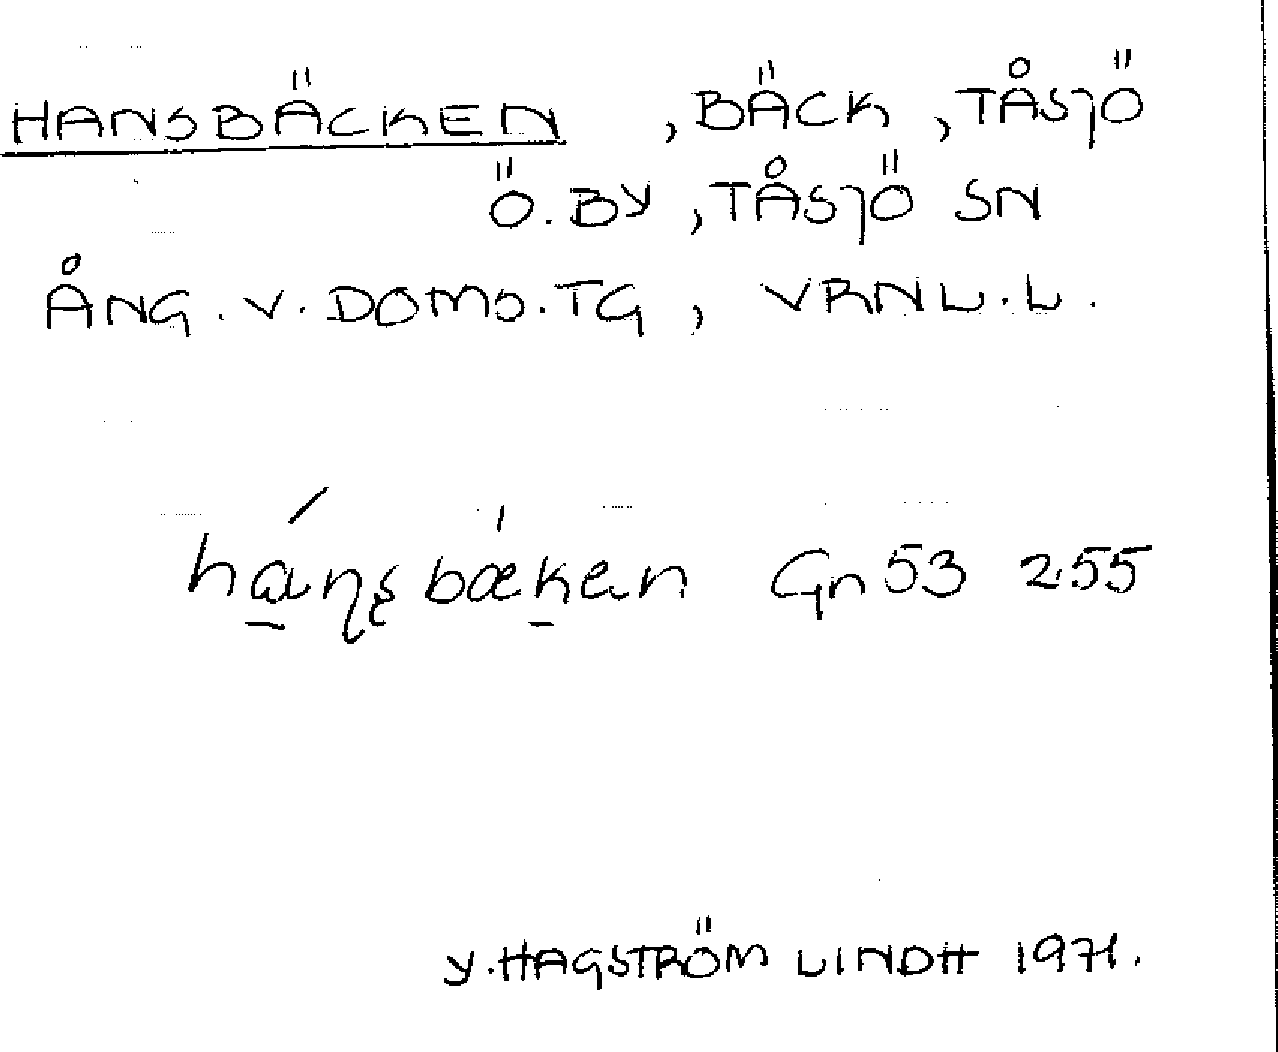 HANSBÄCKEN , BÄCK , TÅSJÖ
Ö. BY , TÅSJÖ SN
ÅNG. V. DOMD. TG , VRNL. L.
Gn 53 255
Y. HAGSTRÖM LINDH 1971.